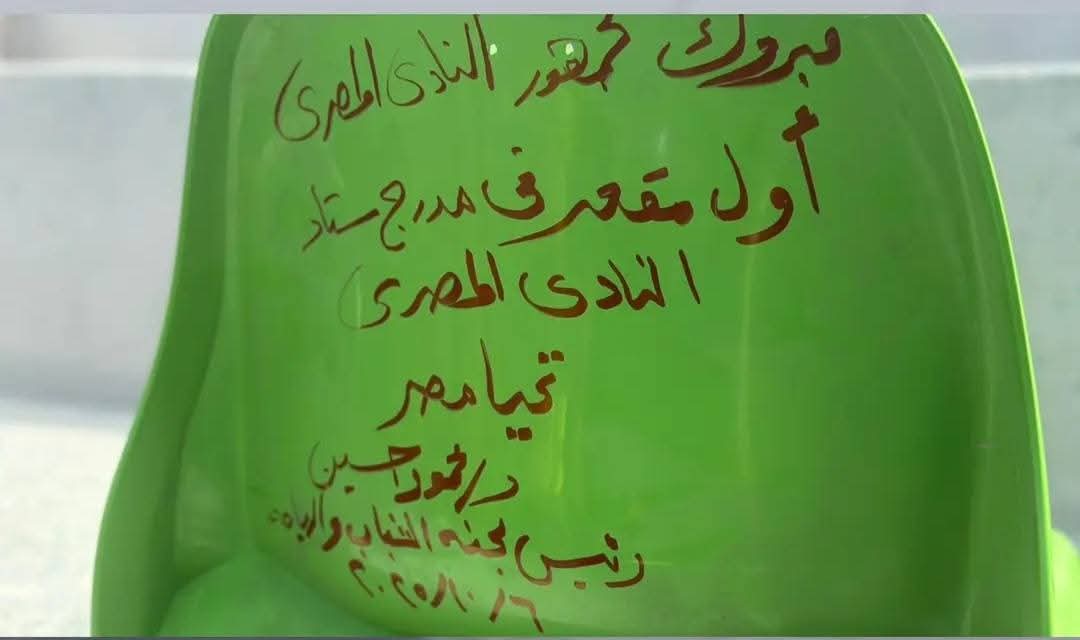 مبروك لجمهور النادى المصرى
أول مقعد فى مدرج ستاد
النادى المصرى
تحيا مصر
د/محمود حسين
رئيس لجنه الشباب والرياضه
٢٠٢٥/١٠/٦